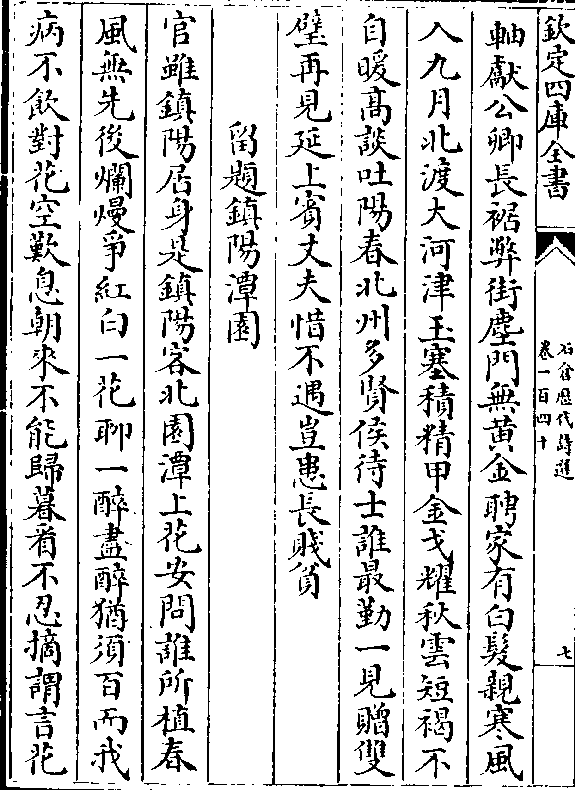 欽定四庫全書
石倉歷代詩選
卷一百四十
七
軸獻公卿長裾弊街塵門無黄金聘家有白髮親寒風
入九月北渡大河津玉塞積精甲金戈耀秋雲短褐不
自暖髙談吐陽春北州多賢侯待士誰最勤一見贈雙
璧再見延上賓丈夫惜不遇豈患長賤貧
留題鎮陽潭園
官雖鎮陽居身是鎮陽客北園潭上花安問誰所植春
風無先後爛熳爭紅白一花聊一醉盡醉猶須百而我
病不飲對花空歎息朝來不能歸暮看不忍摘謂言花